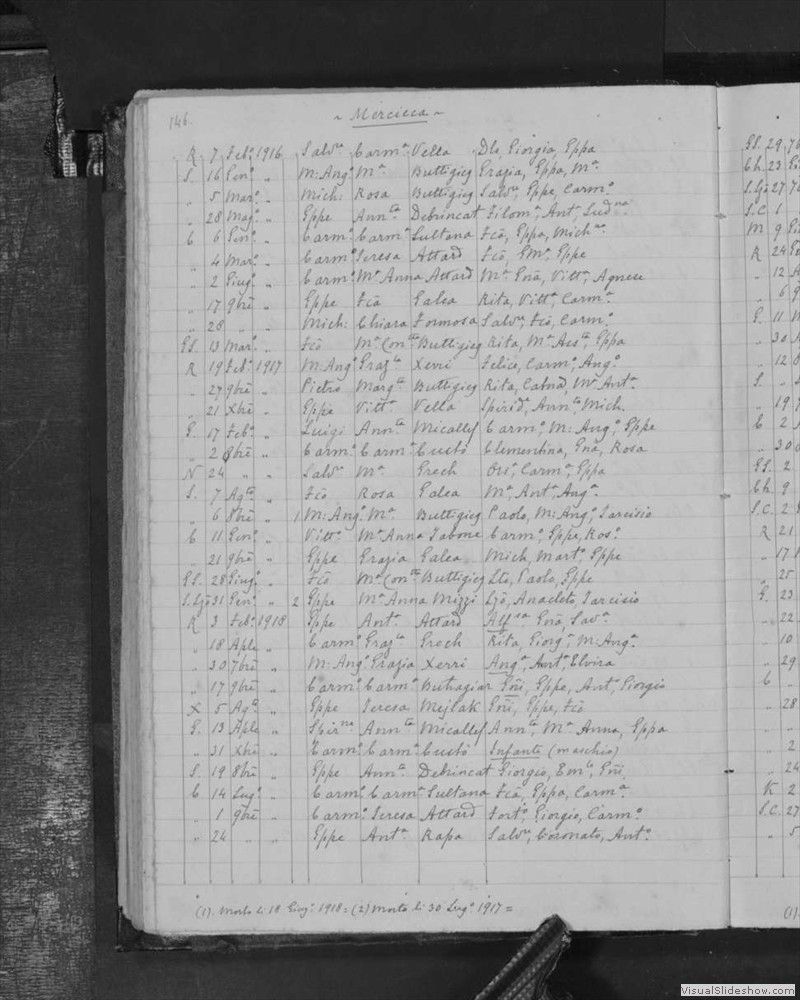 146.
~ Mercieca ~
R 7 Feb.º 1916 Salv.re Carm.ª Vella Dls, Giorgia, Eppa
S. 16 Gen.º " M: Ang.º M.ª Buttigieg Grazia, Eppa, M.ª
" 5 Mar.º " Mich: Rosa Buttigieg Salv.re, Eppe, Carm.º
" 28 Mag.º " Eppe Ann.ta Debrincat Filom.ª, Ant.
C 6 Gen.º " Carm.º Carm.ª Sultana Fcã, Eppa, Mich.
" 4 Mar.º " Carm.º Teresa Attard Fcõ, Eppe
" 2 Giug.º " Carm.º M.ª Anna Attard M.ª Gnã, Vitt.ª, Agnese
" 17 9brē " Eppe Fcã Galea Rita, Vitt.ª, Carm.ª
" 28 " " Mich: Chiara Formosa Salv.re, Fcõ, Carm.º
GS. 13 Mar.º " Fcõ M.ª Con.tta Buttigieg Rita, M.ª Eppa
R 19 Feb.º 1917 M: Ang.º Graz.la Xerri Felice, Carm.º, Ang.º
" 27 9brē " Pietro Marg.ta Buttigieg Rita, M.ª Ant.ª
" 21 Xbrē " Eppe Vitt.ª Vella Spirid.e, Ann.ta, Mich.
G. 17 Feb.º " Luigi Ann.ta Micallef Carm.º, M: Ang.º, Eppe
" 2 8brē " Carm.º Carm.ª Custò Clementina, Gnã, Rosa
N 24 " " Salv.re M.ª Grech Ors.ª, Carm.ª, Eppa
S. 7 Ag.to " Fcõ Rosa Galea M.ª, Ant.ª, Ang.ª
" 6 8brē " 1 M: Ang.º M.ª Buttigieg Paolo, M: Ang.º, Tarcisio
C 11 Gen.º " Vitt.º M.ª Anna Tabone Carm.º, Eppe, Ros.º
" 21 9brē " Eppe Grazia Galea Mich, Mart.º, Eppe
GS. 28 Giug.º " Fcõ M.ª Con.tta Buttigieg Paolo, Eppe
S. Ljõ 31 Gen.º " 2 Eppe M.ª Anna Mizzi Ljõ, Anacleto, Tarcisio
R 3 Feb.º 1918 Eppe Ant.ª Attard Gnã, Sav.ª
" 18 Aple " Carm.º Graz.la Grech Rita, Giorg.ª, M: Ang.ª
" 30 7brē " M: Ang.º Grazia Xerri Ang.ª, Ant.ª, Elvira
" 17 9brē " Carm.º Carm.ª Buhagiar Gñi, Eppe, Ant.º, Giorgio
X 5 Ag.to " Eppe Teresa Mejlak Gñi, Eppe, Fcõ
G. 13 Aple " Ann.ta Micallef Ann.ta, M.ª Anna, Eppa
" 31 Xbrē " Carm.º Carm.ª Custò Infante (maschio)
S. 19 8brē " Eppe Ann.ta Debrincat Giorgio, Em.le, Gñi
C 14 Lug.º " Carm.º Carm.ª Sultana Fcã, Eppa, Carm.ª
" 1 9brē " Carm.º Teresa Attard Fort.º, Giorgio, Carm.º
" 24 " " Eppe Ant.ª Rapa Salv.re, Coronato, Ant.º
(1). Morto li 18 Giug.º 1918 = (2) Morto li 30 Lug.º 1917 =
GS. 29
Ch. 23
S. Ljõ 27
S.C. 1
M 9
R 24
" 12
" 6
G. 11
" 30
" 12
S. "
" 19
C 2
" 30
GS. 2
Ch. 9
S.C. 2
R 21
" 17
" 25
G. 23
" 22
" 10
" 29
C "
" 28
" 2
" 24
K 2
S.C. 27
" 5
(1).
VisualSlideshow.com